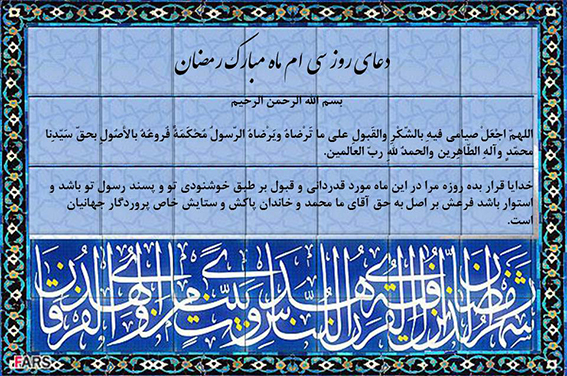 دعای روز سی ام ماه مبارک رمضان
بسم الله الرحمن الرحیم
اللهمّ اجْعَلْ صیامی فیهِ بالشّکْرِ والقَبولِ علی ما تَرْضاهُ ویَرْضاهُ الرّسولُ مُحْکَمَةً فُروعُهُ بالأصُولِ بحقّ سَیّدِنا
محمّدٍ وآلهِ الطّاهِرین والحمدُ للهِ ربّ العالمین.
خدایا قرار بده روزه مرا در این ماه مورد قدردانی و قبول بر طبق خوشنودی تو و پسند رسول تو باشد و
استوار باشد فرعش بر اصل به حق آقای ما محمد و خاندان پاکش و ستایش خاص پروردگار جهانیان
است.
شهر رمضان الذی انزل فیه القرآن هدی للناس و بینت من الهدی و الفرقان
FARS